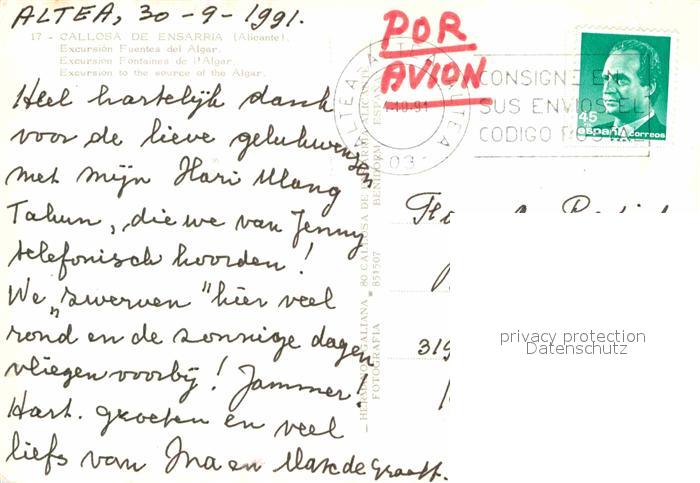 ALTEA, 30-9-1991.
17 - CALLOSA DE ENSARRIA (Alicante).
Excursión Fuentes del Algar.
Excursion Fontaines de l'Algar.
Excursion to the source of the Algar.
Heel hartelijk dank
voor de lieve gelukwensen
met mijn Hari Ulang
Tahun, die we van Jenny
telefonisch hoorden!
We „zwerven" hier veel
rond en de zonnige dagen
vliegen voorbij! Jammer!
Hart. groeten en veel
liefs van Ina en Max de Graaff.
POR
AVION
ALTEA ALTEA
-10-91
03
CONSIGNE EN
SUS ENVIOS EL
CODIGO POSTAL
45
españa correos
HERMANOS GALIANA
80 CALLOSA DE ENSARRIA ALICANTE
FOTOGRAFIA
851507
BENIDORM
ESPAÑA
319
privacy protection
Datenschutz